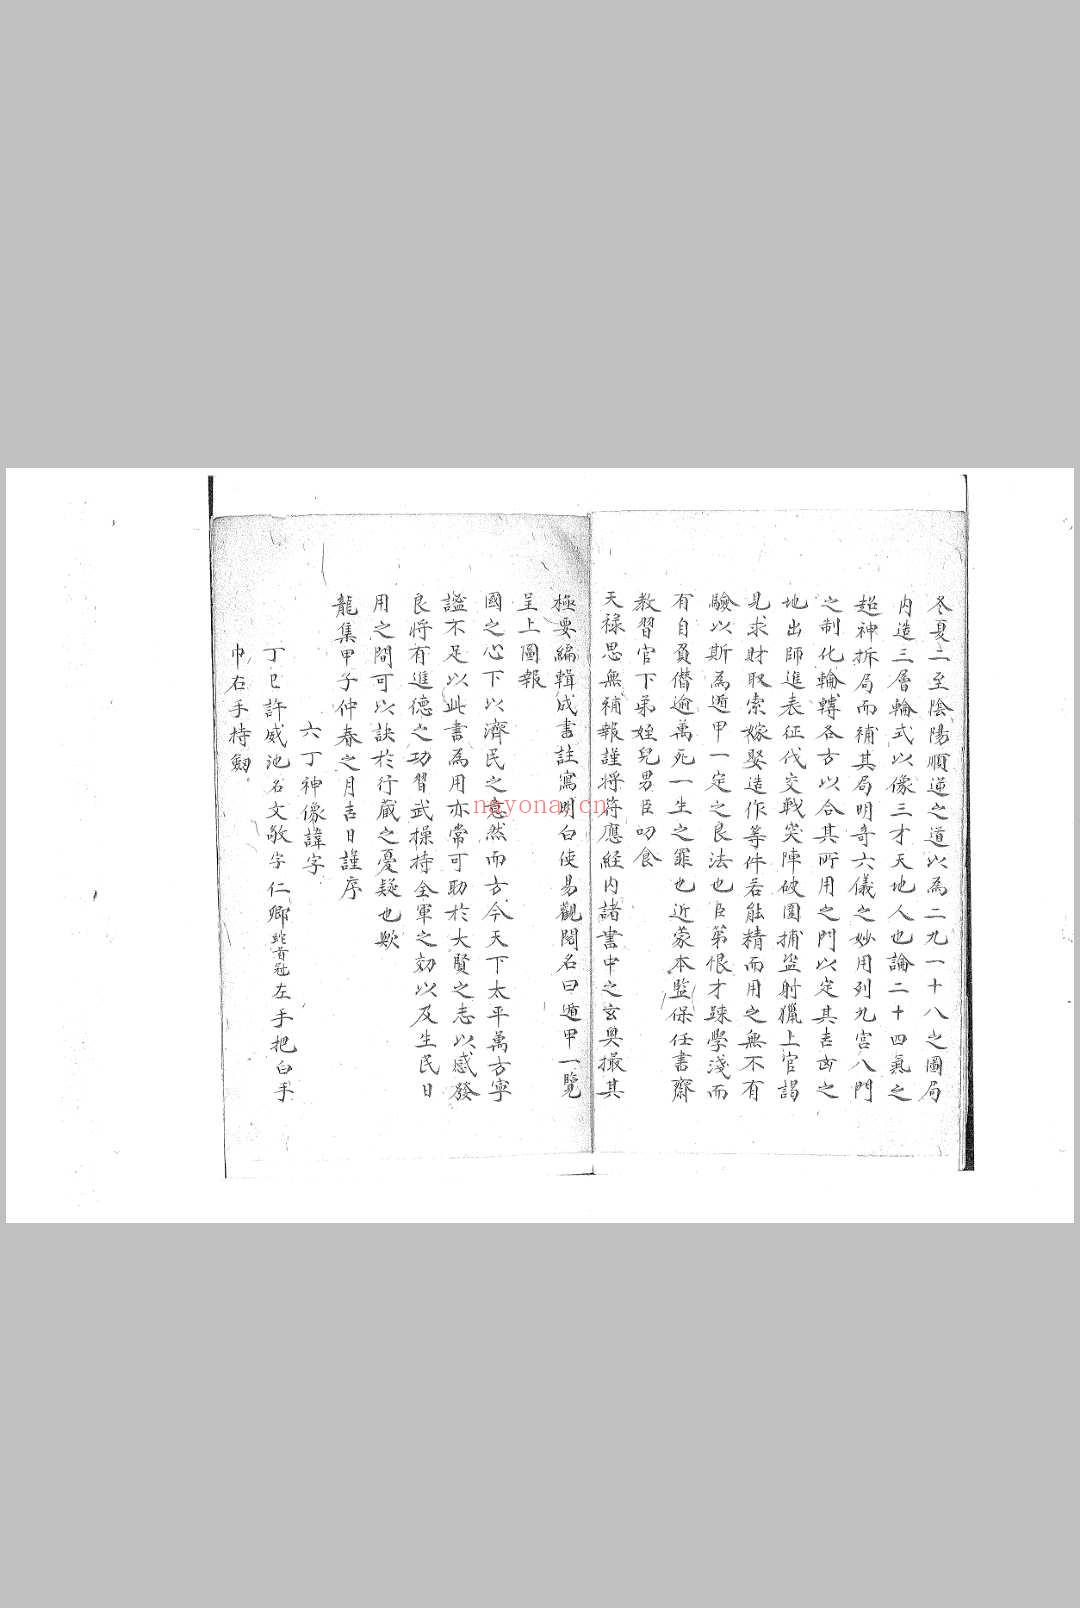 冬夏二至陰陽順逆之道以為二九一十八之圖局
內造三層輪式以像三才天地人也論二十四氣之
超神拆局而補其局明奇六儀之妙用列九宮八門
之制化輪轉各方以合其所用之門以定其吉凶之
地出師進表征伐交戰突陣破圍捕盜射獵上官謁
見求財取索嫁娶造作等件若能精而用之無不有
驗以斯為遁甲一定之良法也臣第恨才踈學淺而
有自負僣逾萬死一生之罪也近蒙本監保任書齋
教習官下弟姪兒男臣叨食
天祿思無補報謹將符應経內諸書中之玄奧撮其
極要編輯成書註寫明白使易觀閱名曰遁甲一覽
呈上圖報
國之心下以濟民之意然而方今天下太平萬方寧
謐不足以此書為用亦常可助於大賢之志以感發
良將有進德之功習武操持全軍之効以及生民日
用之間可以訣於行藏之憂疑也歟
龍集甲子仲春之月吉日謹序
六丁神像諱字
丁巳許威池名文敬字仁鄉蛇首冠左手把白手
巾右手持劔
neyona.cn